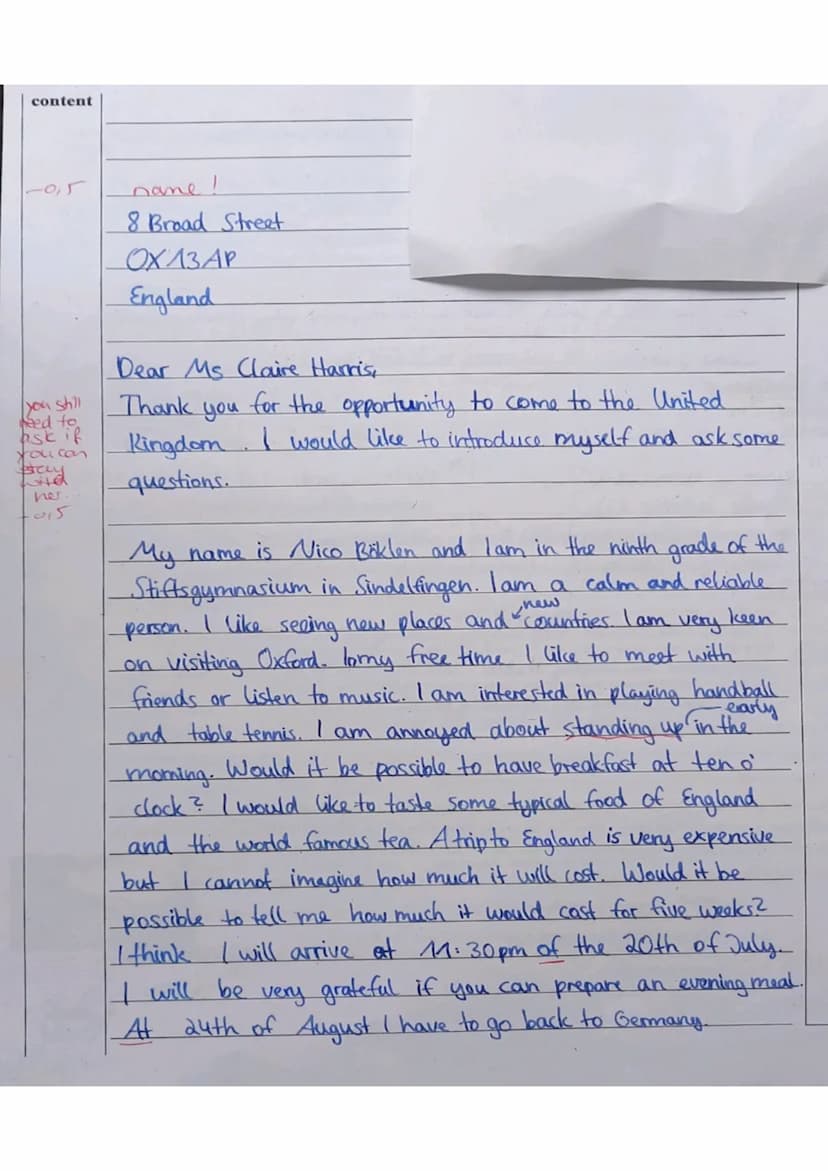 content
-0,5
name!
8 Broad Street
OX13AP
England
Dear Ms Claire Harris,
Thank you for the opportunity to come to the United
Kingdom. I would like to introduce myself and ask some
questions.
you still
need to
ask if
you can
stay
with
her
-0,5
My name is Nico Böklen and I am in the ninth grade of the
Stiftsgymnasium in Sindelfingen. I am a calm and reliable
new
person. I like seeing new places and countries. I am very keen
on visiting Oxford. In my free time I like to meet with
friends or listen to music. I am interested in playing handball
early
and table tennis. I am annoyed about standing up in the
morning. Would it be possible to have breakfast at ten o'
clock? I would like to taste some typical food of England
and the world famous tea. A trip to England is very expensive
but I cannot imagine how much it will cost. Would it be
possible to tell me how much it would cost for five weeks?
I think I will arrive at 11:30pm of the 20th of July.
I will be very grateful if you can prepare an evening meal.
At 24th of August I have to go back to Germany.